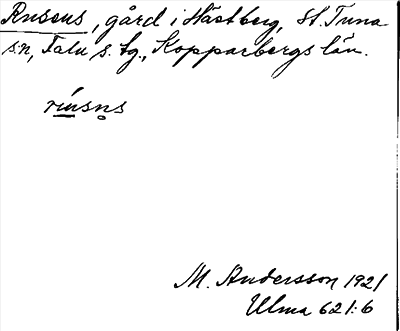 Rusens, gård i Hästberg, St. Tuna
sn, Falu s. tg., Kopparbergs län.
rúnsns
M. Andersson 1921
Ulma 621:6